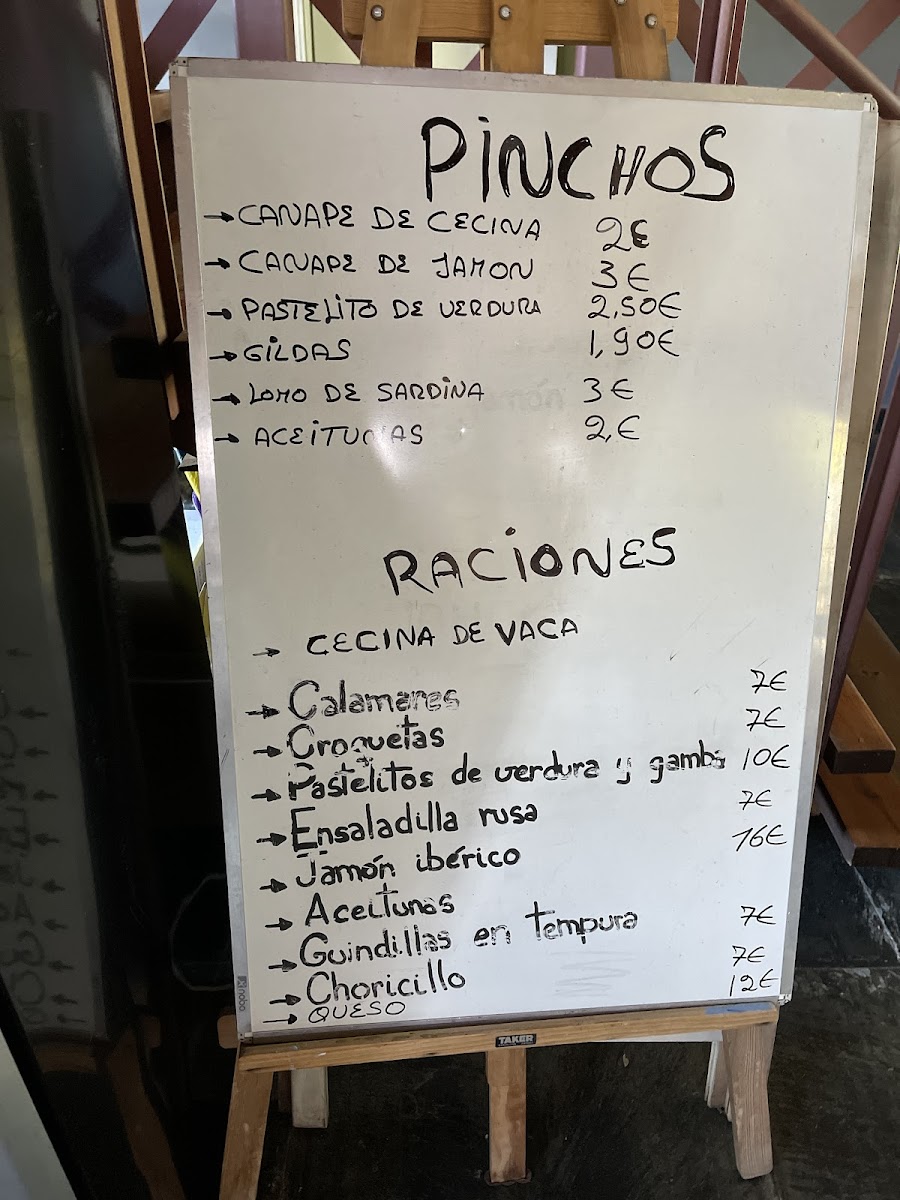 PINCHOS
→ CANAPE DE CECINA 2€
→ CANAPE DE JAMON 3€
→ PASTELITO DE VERDURA 2,50€
→ GILDAS 1,90€
→ LOMO DE SARDINA 3€
→ ACEITUNAS 2,€
RACIONES
→ CECINA DE VACA
→ Calamares 7€
→ Croquetas 7€
→ Pastelitos de verdura y gambs 10€
→ Ensaladilla rusa 7€
→ Jamón ibérico 16€
→ Aceitunas
→ Guindillas en tempura 7€
→ Choricillo 7€
→ QUESO 12€
nobo
TAKER